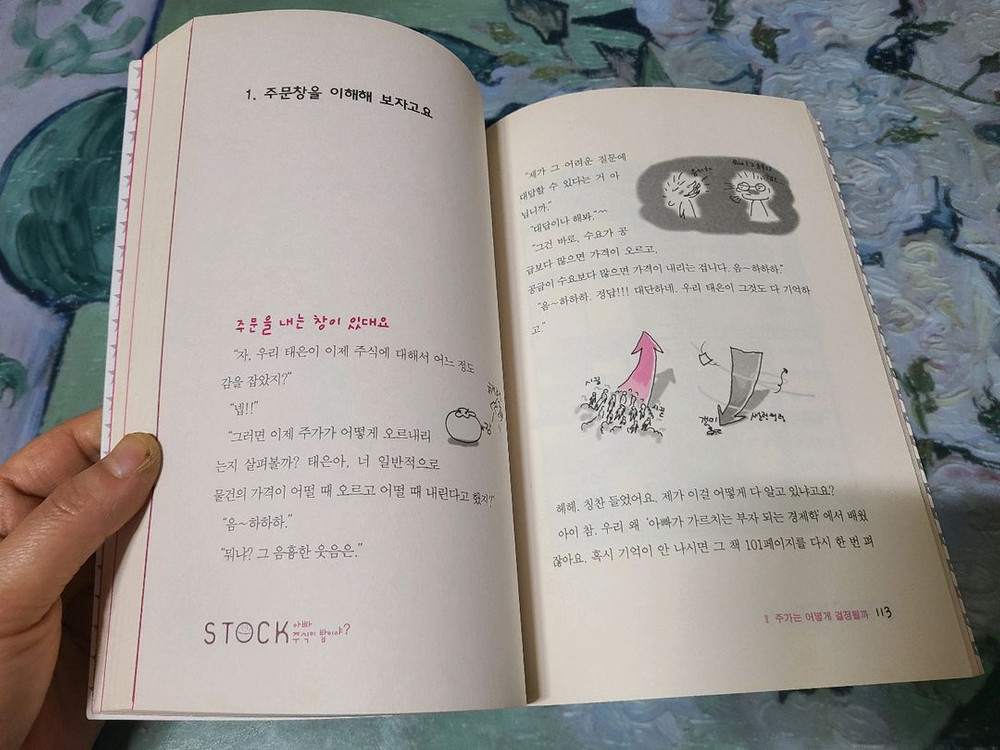 1. 주문창을 이해해 보자고요
주문을 내는 창이 있대요
“자, 우리 태은이 이제 주식에 대해서 어느 정도
감을 잡았지?”
“넵!!”
“그러면 이제 주가가 어떻게 오르내리
는지 살펴볼까? 태은아, 너 일반적으로
물건의 가격이 어떨 때 오르고 어떨 때 내린다고 했지?”
“음~하하하.”
“뭐냐? 그 음흉한 웃음은.”
STOCK 아빠
주식이 밥이야?
“제가 그 어려운 질문에
대답할 수 있다는 거 아
닙니까.”
“대답이나 해봐.”^^
“그건 바로, 수요가 공
급보다 많으면 가격이 오르고,
공급이 수요보다 많으면 가격이 내리는 겁니다. 음~하하하.”
“음~하하하. 정답!!! 대단하네. 우리 태은이 그것도 다 기억하
고.”
헤헤. 칭찬 들었어요. 제가 이걸 어떻게 다 알고 있냐고요?
아이 참. 우리 왜 ‘아빠가 가르치는 부자 되는 경제학’에서 배웠
잖아요. 혹시 기억이 안 나시면 그 책 101페이지를 다시 한 번 펴
Ⅱ 주가는 어떻게 결정될까 113